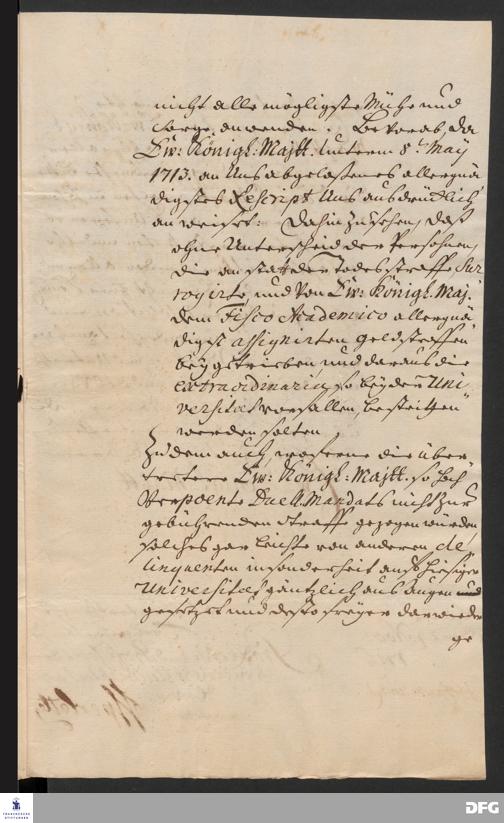 nicht alle mögligste Mühe und
Sorge anwenden. Bevorab, da
Ew: Königl: Majtt. unterm 8t. May
1713. an Uns abgelaßenes allergnä
digstes Rescript Uns ausdrücklich
anweiset: Dahin zu sehen, daß
ohne Unterscheid der Persohnen,
die anstatt der Todesstraffe Sur
rogirte, und von Ew: Königl. Maj.
dem Fisco Academico allergnä
digst assignirten geldstraffen
beygetrieben und daraus die
extraordinaria, so bey der Uni
versitaet vorfallen, bestritten
werden solten
Zudem auch, woferne die über
treter Ew: Königl: Majtt. so hoch
verpoente Duell Mandats nicht zur
gebührenden straffe gezogen würden
solches gar leichte von anderen de
linquenten insonderheit auf hiesiger
Universitaet gäntzlich aus Augen
gesetzet und desto freyer darwieder
ge
FRANCKESCHE
STIFTUNGEN
DFG